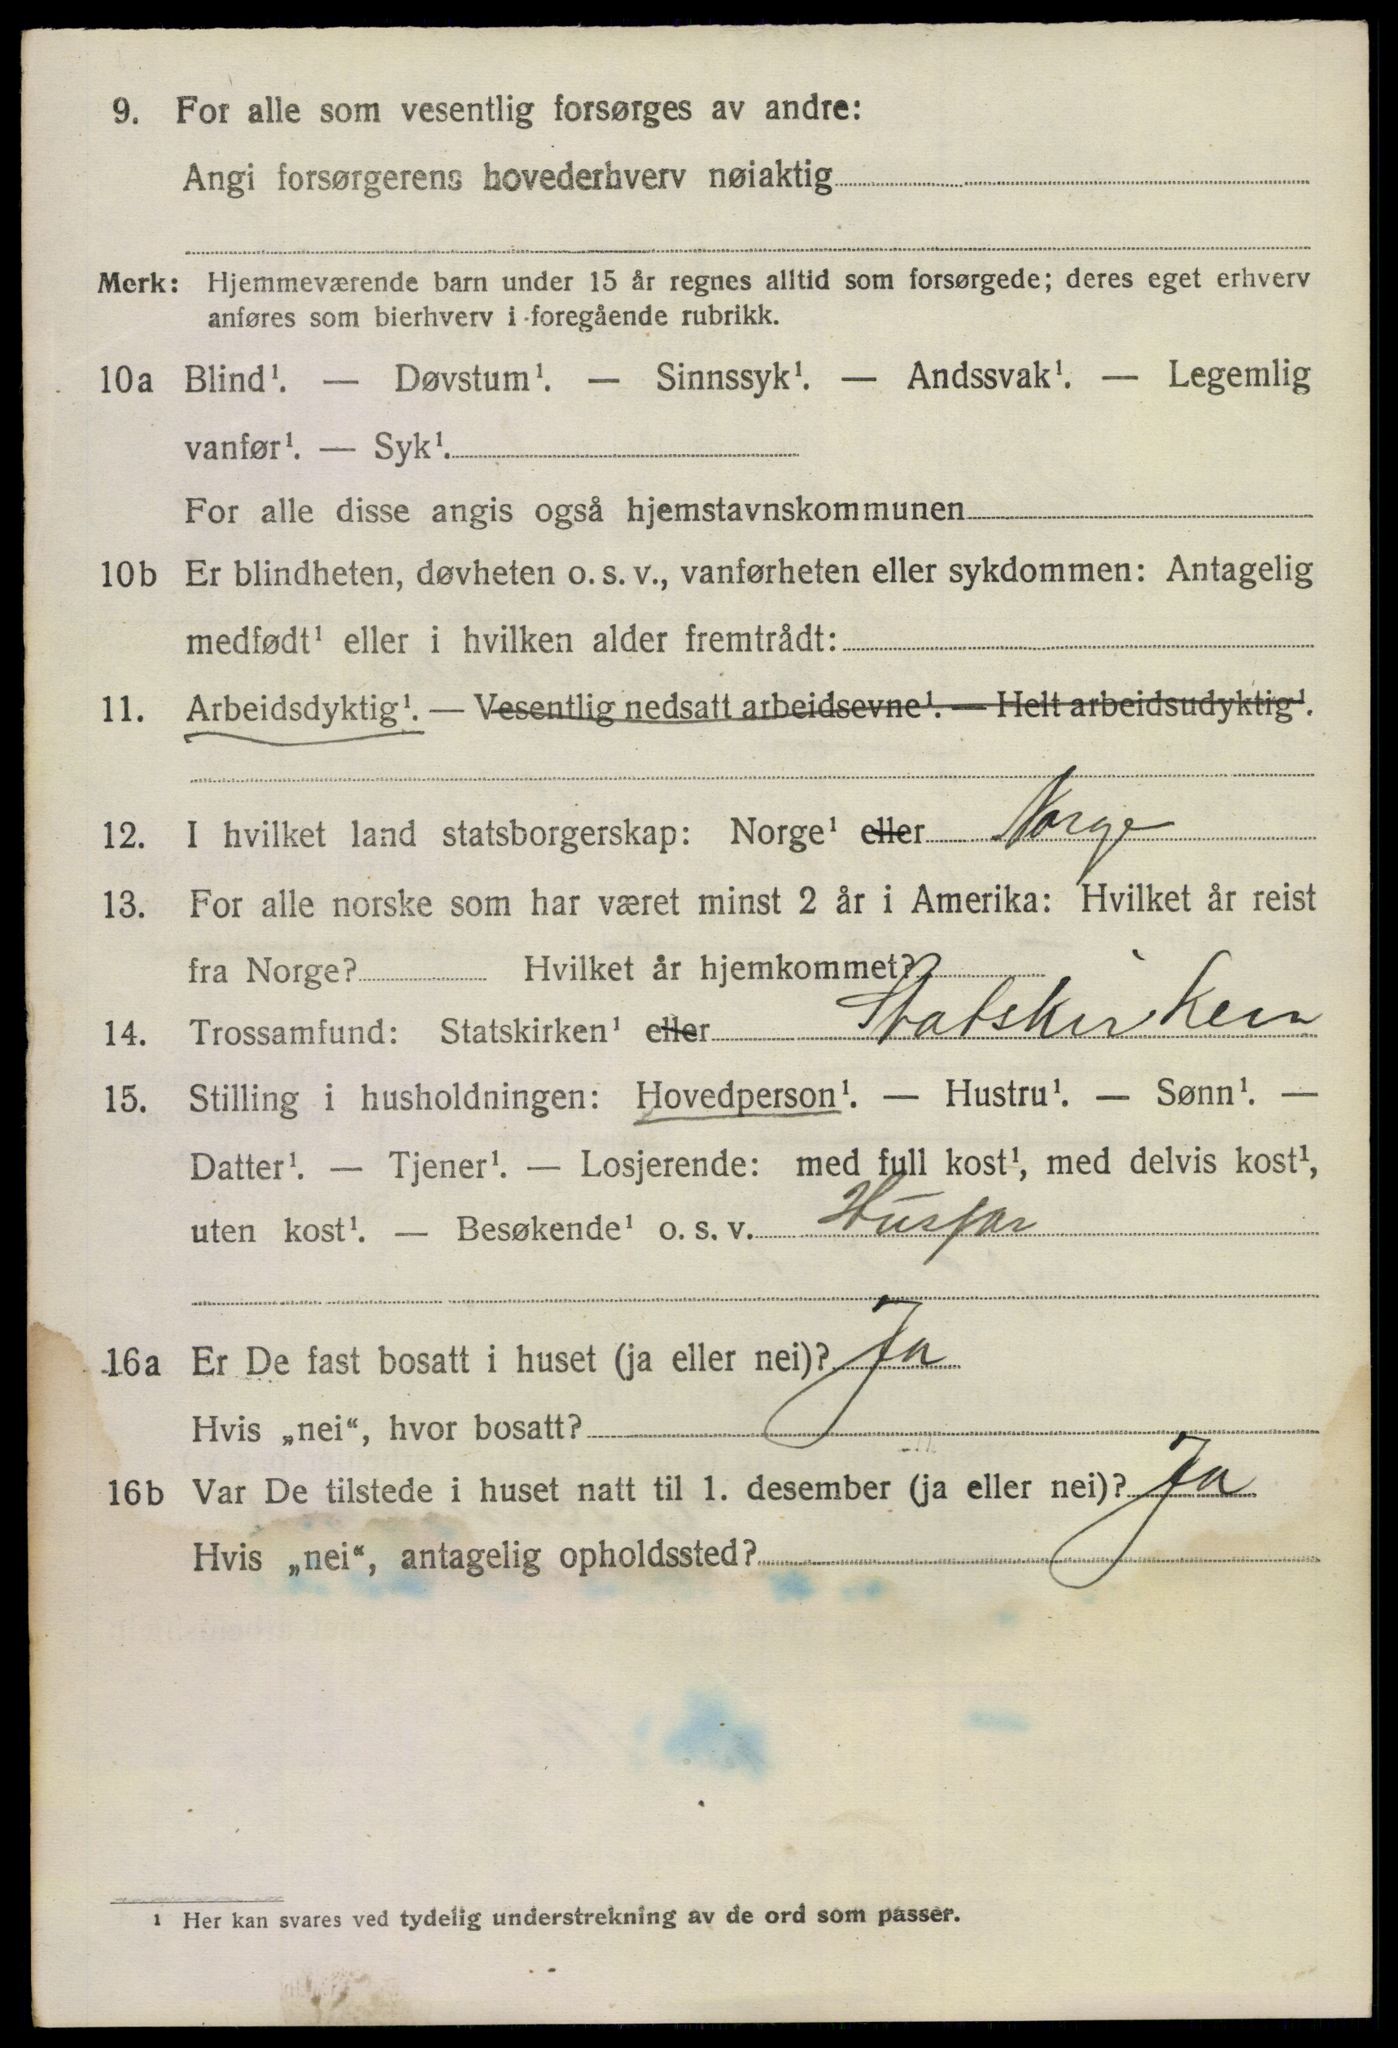 9. For alle som vesentlig forsørges av andre:
Angi forsørgerens hovederhverv nøiaktig
Merk: Hjemmeværende barn under 15 år regnes alltid som forsørgede; deres eget erhverv
anføres som bierhverv i foregående rubrikk.
10a Blind¹. — Døvstum¹. — Sinnssyk¹. — Andssvak¹. — Legemlig
vanfør¹. — Syk¹.
For alle disse angis også hjemstavnskommunen
10b Er blindheten, døvheten o. s. v., vanførheten eller sykdommen: Antagelig
medfødt¹ eller i hvilken alder fremtrådt:
11. Arbeidsdyktig¹. — Vesentlig nedsatt arbeidsevne¹. — Helt arbeidsudyktig¹.
12. I hvilket land statsborgerskap: Norge¹ eller Norge
13. For alle norske som har været minst 2 år i Amerika: Hvilket år reist
fra Norge? Hvilket år hjemkommet?
14. Trossamfund: Statskirken¹ eller Statskirken
15. Stilling i husholdningen: Hovedperson¹. — Hustru¹. — Sønn¹. —
Datter¹. — Tjener¹. — Losjerende: med full kost¹, med delvis kost¹,
uten kost¹. — Besøkende¹ o. s. v. Husfar
16a Er De fast bosatt i huset (ja eller nei)? Ja
Hvis „nei“, hvor bosatt?
16b Var De tilstede i huset natt til 1. desember (ja eller nei)? Ja
Hvis „nei“, antagelig opholdssted?
¹ Her kan svares ved tydelig understrekning av de ord som passer.